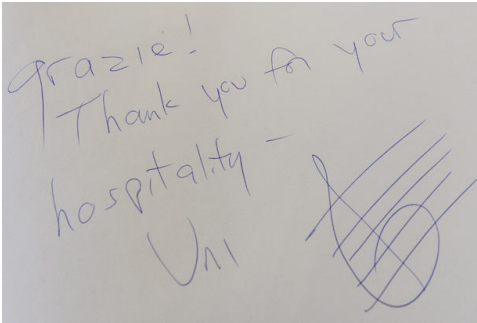 grazie!
Thank you for your
hospitality –
Uni